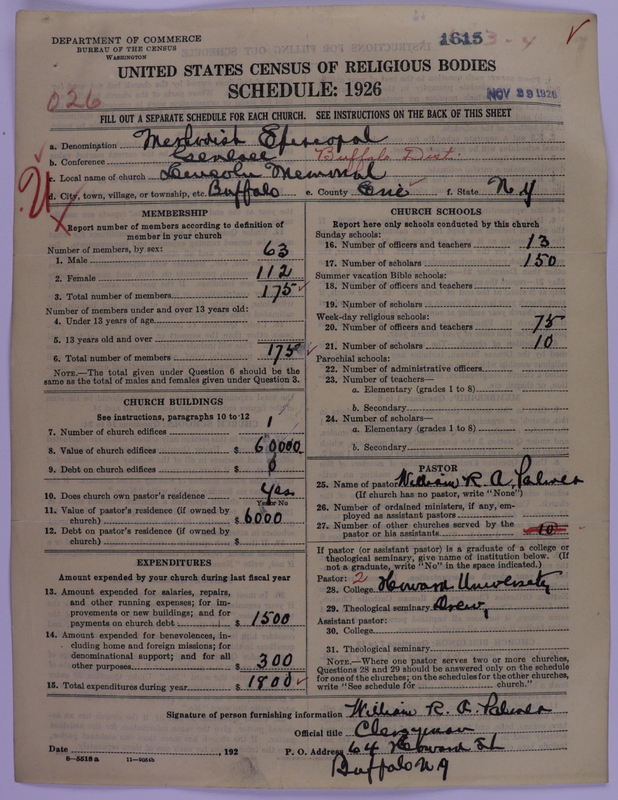 DEPARTMENT OF COMMERCE
BUREAU OF THE CENSUS
WASHINGTON
1615 3-4
UNITED STATES CENSUS OF RELIGIOUS BODIES
SCHEDULE: 1926
026
NOV 29 1926
FILL OUT A SEPARATE SCHEDULE FOR EACH CHURCH. SEE INSTRUCTIONS ON THE BACK OF THIS SHEET
a. Denomination Methodist Episcopal
b. Conference Genesee Buffalo Dist.
c. Local name of church Lincoln Memorial
d. City, town, village, or township, etc. Buffalo e. County Erie f. State N Y
MEMBERSHIP
Report number of members according to definition of
member in your church
Number of members, by sex:
1. Male 63
2. Female 112
3. Total number of members 175
Number of members under and over 13 years old:
4. Under 13 years of age
5. 13 years old and over
6. Total number of members 175
NOTE.—The total given under Question 6 should be
same as the total of males and females given under Question 3.
CHURCH BUILDINGS
See instructions, paragraphs 10 to 12
7. Number of church edifices 1
8. Value of church edifices $ 60000
9. Debt on church edifices $ 0
10. Does church own pastor's residence Yes
Yes or No
11. Value of pastor's residence (if owned by
church) $ 6000
12. Debt on pastor's residence (if owned by
church) $
EXPENDITURES
Amount expended by your church during last fiscal year
13. Amount expended for salaries, repairs,
and other running expenses; for im-
provements or new buildings; and for
payments on church debt $ 1500
14. Amount expended for benevolences, in-
cluding home and foreign missions; for
denominational support; and for all
other purposes $ 300
15. Total expenditures during year $ 1800
CHURCH SCHOOLS
Report here only schools conducted by this church
Sunday schools:
16. Number of officers and teachers 13
17. Number of scholars 150
Summer vacation Bible schools:
18. Number of officers and teachers
19. Number of scholars
Week-day religious schools:
20. Number of officers and teachers 75
21. Number of scholars 10
Parochial schools:
22. Number of administrative officers
23. Number of teachers—
a. Elementary (grades 1 to 8)
b. Secondary
24. Number of scholars—
a. Elementary (grades 1 to 8)
b. Secondary
PASTOR
25. Name of pastor William R. A. Palmer
(If church has no pastor, write "None")
26. Number of ordained ministers, if any, em-
ployed as assistant pastors
27. Number of other churches served by the
pastor or his assistants 10
If pastor (or assistant pastor) is a graduate of a college or
theological seminary, give name of institution below. (If
not a graduate, write "No" in the space indicated.)
Pastor: 2
28. College Howard University
29. Theological seminary Drew
Assistant pastor:
30. College
31. Theological seminary
NOTE.—Where one pastor serves two or more churches,
Questions 28 and 29 should be answered only on the schedule
for one of the churches; on the schedules for the other churches,
write "See schedule for church."
Signature of person furnishing information William R. A. Palmer
Official title Clergyman
Date , 192 P. O. Address 64 Howard St
8—5518 a 11—9064b
Buffalo N Y